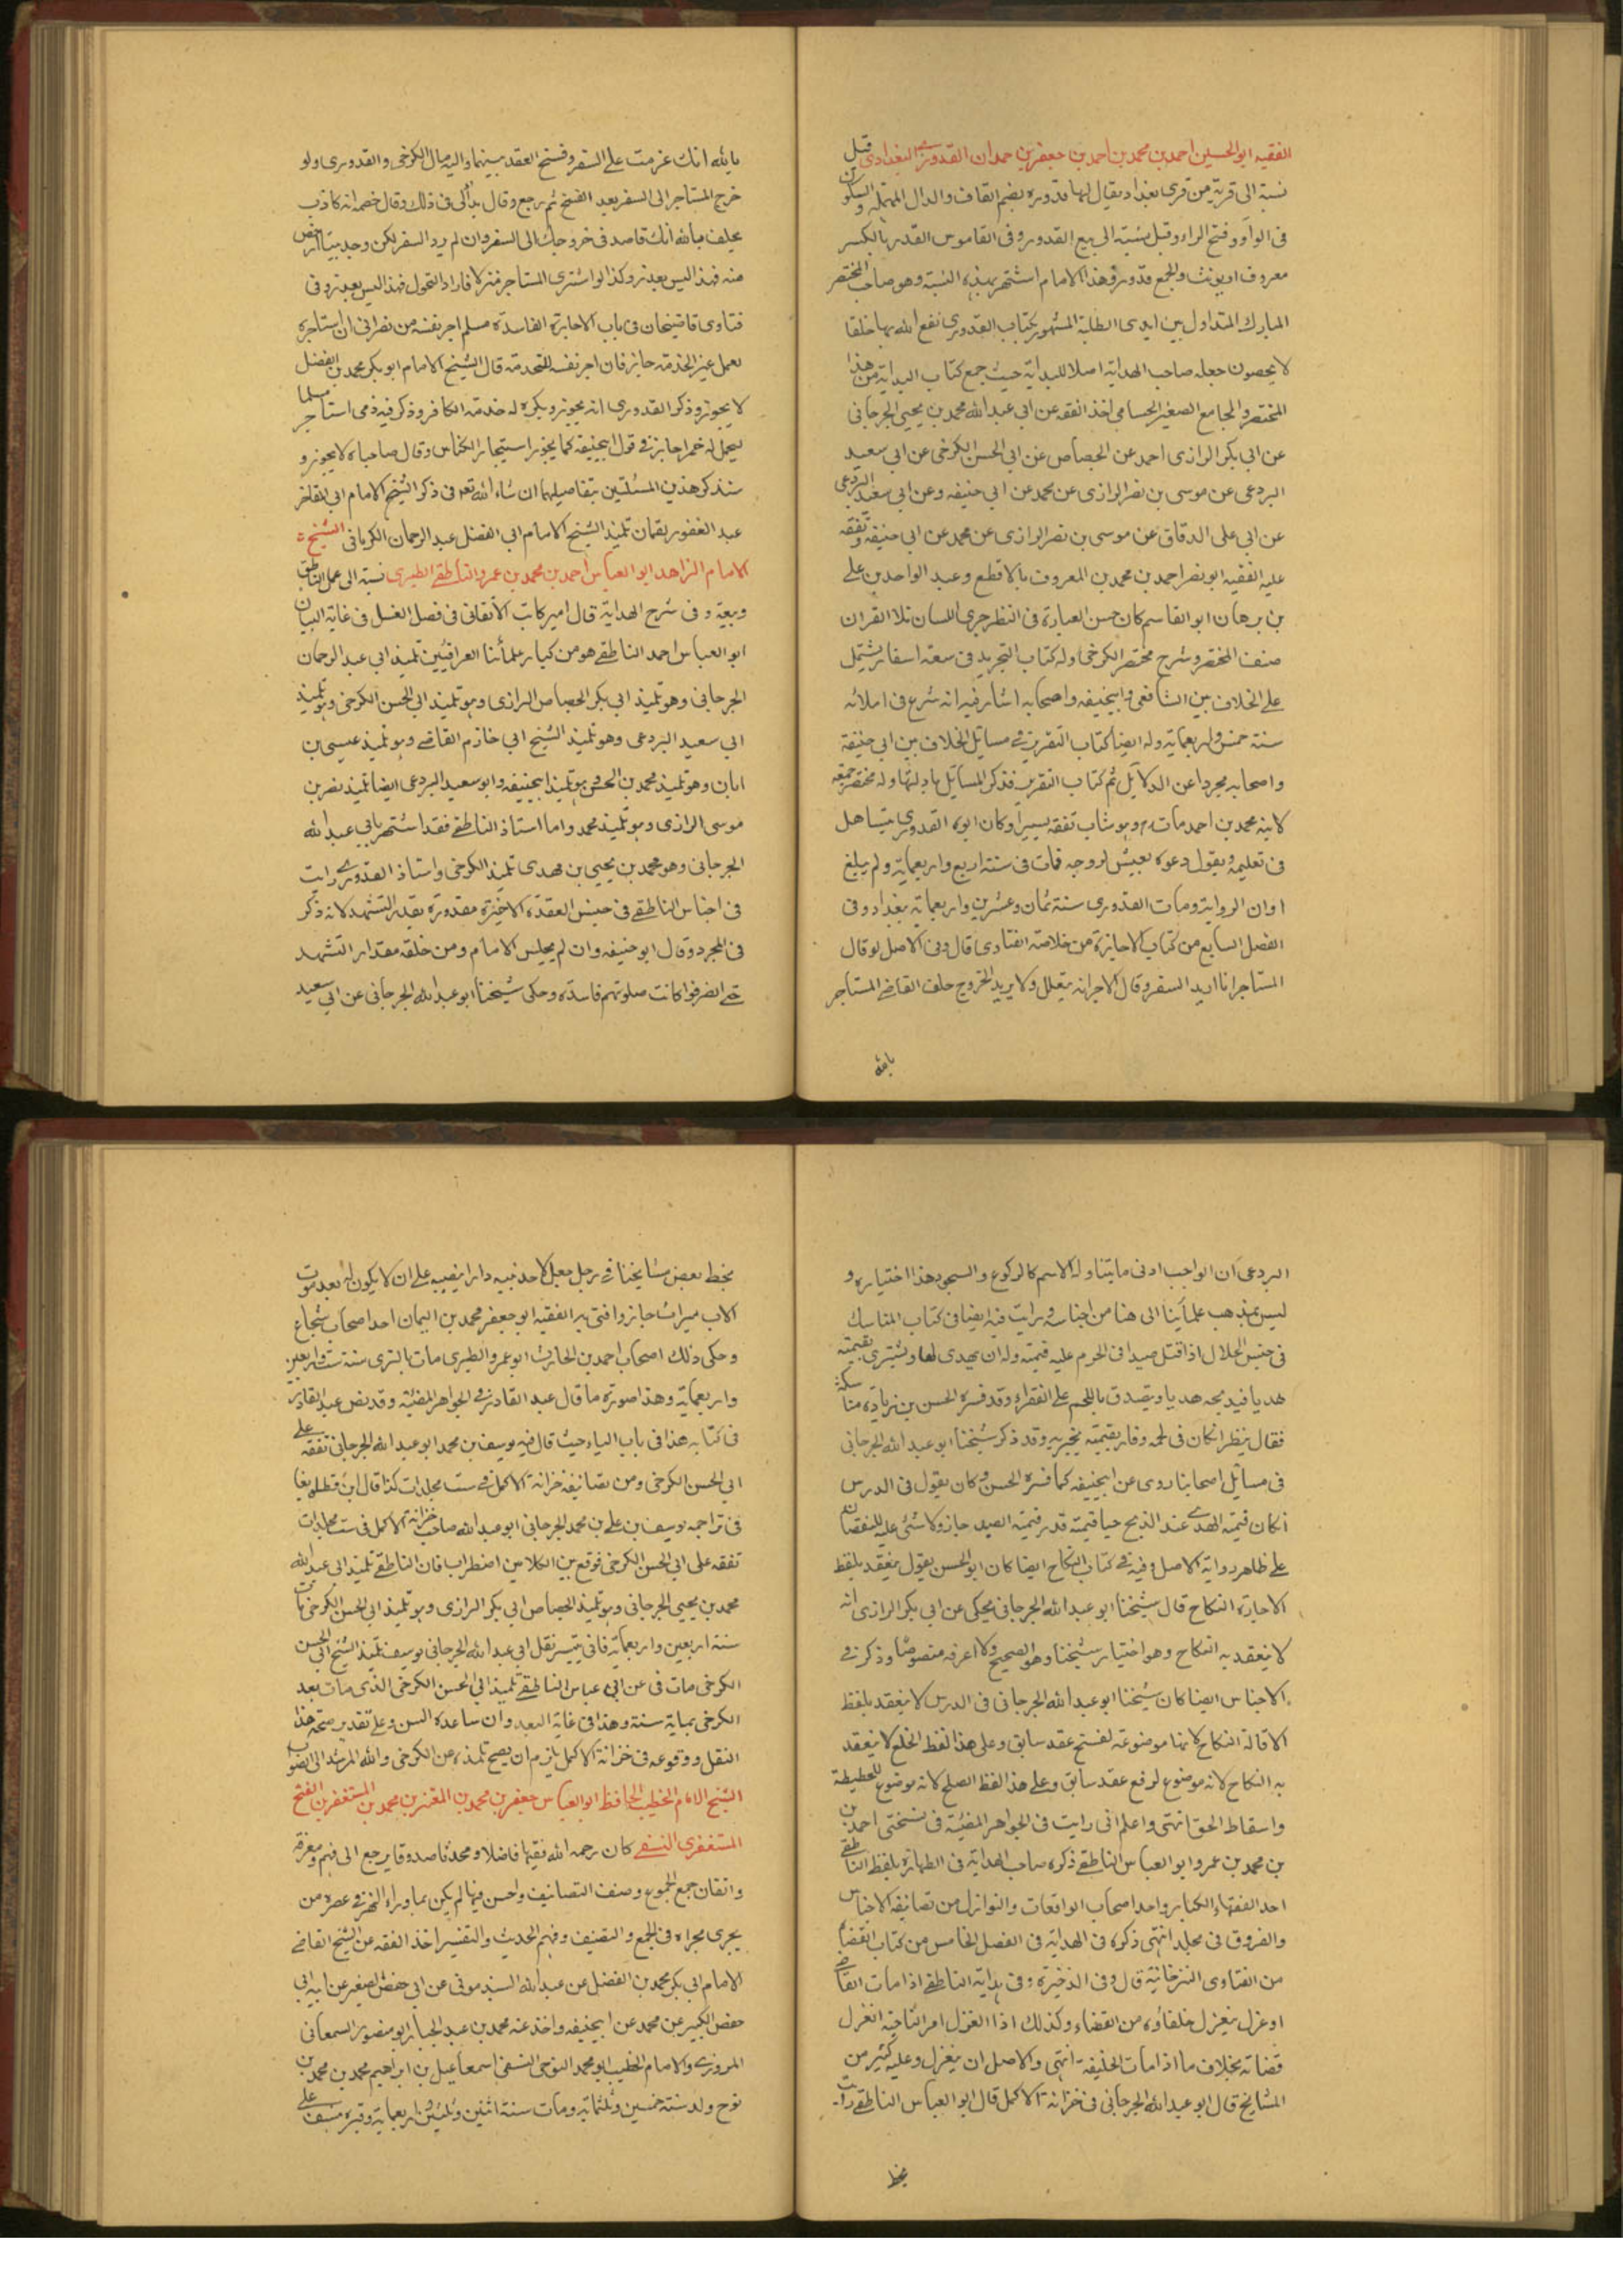 الفقيه ابو الحسين احمد بن محمد بن احمد بن جعفر بن حمدان القدوري البغدادي قيل
نسبة الى قرية من قرى بغداد يقال لها قدوره بضم القاف والدال المهمله والسكون
فى الواو وفتح الراء وقيل نسبته الى بيع القدور وفى القاموس القدر بالكسر
معروف او يونث والجمع قدور وهذا الامام اشتهر بهذه النسبة وهو صاحب المختصر
المبارك المتداول بين ايدى الطلبة المشهور بكتاب القدوري نفع الله بها خلقا
لا يحصون جعله صاحب الهداية اصلا للبداية حيث جمع كتاب البداية من هذا
المختصر والجامع الصغير الحسامى اخذ الفقه عن ابى عبد الله محمد بن يحيى الجرجانى
عن ابى بكر الرازى احمد عن الجصاص عن ابى الحسن الكرخى عن ابى سعيد
البردعى عن موسى بن نصر الرازى عن محمد عن ابى حنيفه وعن ابى سعيد البردعى
عن ابى على الدقاق عن موسى بن نصر الرازى عن محمد عن ابى حنيفة وتفقه
عليه الفقيه ابو نصر احمد بن محمد بن المعروف بالاقطع وعبد الواحد بن على
بن برهان ابو القاسم كان حسن العبارة فى النظر جرى اللسان تلا القران
صنف المختصر وشرح مختصر الكرخى وله كتاب التجريد فى سعة اسفار يشتمل
على الخلاف بين الشافعى وابيحنيفه واصحابه اشار فيه انه شرع فى املائه
سنة خمس واربعماية وله ايضا كتاب التقريب فى مسايل الخلاف بين ابى حنيفة
واصحابه مجردا عن الدلايل ثم كتاب التقريب فذكر المسايل بادلتها وله مختصر جمعه
لابنه محمد بن احمد مات وهو شاب تفقه يسيرا وكان ابوه القدوري يتساهل
فى تعليمه ويقول دعوه يعيش لروحه فمات فى سنة اربع واربعماية ولم يبلغ
اوان الرواية ومات القدورى سنة ثمان وعشرين واربعماية ببغداد وفى
الفصل السابع من كتاب الاجارة من خلاصة الفتاوى قال وفى الاصل لو قال
المستاجر انا اريد السفر وقال الاجر انه يتعلل ولا يريد الخروج حلف القاضى المستاجر
بالله
بالله انك عزمت على السفر وفسخ العقد بينهما واليه مال الكرخى والقدورى ولو
خرج المستاجر الى السفر بعد الفسخ ثم رجع وقال بدا لى فى ذلك وقال خصمه انه كاذب
يحلف بالله انك قاصد فى خروجك الى السفر وان لم يرد السفر لكن وجد بيتا ارخص
منه فهذا ليس بعذر وكذا لو اشترى المستاجر منزلا فاراد التحول فهذا ليس بعذر وفى
فتاوى قاضيخان فى باب الاجارة الفاسدة مسلم اجر نفسه من نصرانى ان استاجره
لعمل غير الخدمة جاز فان اجر نفسه للخدمة قال الشيخ الامام ابو بكر محمد بن الفضل
لا يجوز وذكر القدورى انه يجوز ويكره له خدمة الكافر وذكر فيه ذمى استاجر مسلما
ليحمل له خمرا جاز فى قول ابيحنيفه كما يجوز استيجار الكناس وقال صاحباه لا يجوز و
سنذكر هذين المسئلتين بتفاصيلهما ان شاء الله تعه فى ذكر الشيخ الامام ابى المفاخر
عبد الغفور بقمان تلميذ الشيخ الامام ابى الفضل عبد الرحمان الكرمانى الشيخ
الامام الزاهد ابو العباس احمد بن محمد بن عمرو الناطقى الطبرى نسبة الى عمل الناطق
وبيعه وفى شرح الهداية قال امير كاتب الاتقانى فى فصل الغسل فى غاية البيان
ابو العباس احمد الناطقى هو من كبار علمائنا العراقيين تلميذ ابى عبد الرحمان
الجرجانى وهو تلميذ ابى بكر الجصاص الرازى وهو تلميذ ابى الحسن الكرخى وهو تلميذ
ابى سعيد البردعى وهو تلميذ الشيخ ابى خازم القاضى وهو تلميذ عيسى بن
ابان وهو تلميذ محمد بن الحسن وهو تلميذ ابيحنيفه وابو سعيد البردعى ايضا تلميذ نصر بن
موسى الرازى وهو تلميذ محمد واما استاذ الناطقى فقد اشتهر بابى عبد الله
الجرجانى وهو محمد بن يحيى بن مهدى تلميذ الكرخى واستاذ القدورى رايت
فى اجناس الناطقى فى جنس القعدة الاخيرة مقدورة بقدر التشهد لانه ذكر
فى المجرد وقال ابو حنيفه وان لم يجلس الامام ومن خلفه مقدار التشهد
حتى انصرفوا كانت صلوتهم فاسده وحكى شيخنا ابو عبد الله الجرجانى عن ابى سعيد
البردعى ان الواجب ادنى ما يتناوله الاسم كالركوع والسجود هذا اختياره و
ليس بمذهب علمائنا الى هنا من اجناسه ورايت فيه ايضا فى كتاب المناسك
فى جنس الحلال اذا قتل صيدا فى الحرم عليه قيمته وله ان يهدى لها ويشترى بقيمته
هديا فيذبحه هديا ويتصدق باللحم على الفقراء وقد فسره الحسن بن زياده مناسكه
فقال ينظر ان كان فى لحمه وفاء بقيمته يجزيه وقد ذكر شيخنا ابو عبد الله الجرجانى
فى مسايل اصحابنا روى عن ابيحنيفه كما فسره الحسن وكان يقول فى الدرس
ان كان قيمة الهدى عند الذبح حيا قيمته قدر قيمة الصيد جاز ولا شئ عليه للنقصان
على ظاهر رواية الاصل وفيه فى كتاب النكاح ايضا كان ابو الحسن يقول ينعقد بلفظ
الاجارة النكاح قال شيخنا ابو عبد الله الجرجانى يحكى عن ابى بكر الرازى انه
لا ينعقد به النكاح وهو اختيار شيخنا وهو الصحيح ولا اعرفه منصوصا وذكر فى
الاجناس ايضا كان شيخنا ابو عبد الله الجرجانى فى الدرس لا ينعقد بلفظ
الاقالة النكاح لانها موضوعة لفسخ عقد سابق وعلى هذا لفظ الخلع لا ينعقد
به النكاح لانه موضوع لرفع عقد سابق وعلى هذا لفظ الصلح لانه موضوع للحطيطة
واسقاط الحق انتهى واعلم انى رايت فى الجواهر المضيئة فى نسختى احمد بن
بن محمد بن عمرو ابو العباس الناطقى ذكره صاحب الهداية فى الطهارة بلفظ الناطقى
احد الفقهاء الكبار واحد اصحاب الواقعات والنوازل من تصانيفه الاجناس
والفروق فى مجلد انتهى ذكره فى الهداية فى الفصل الخامس من كتاب القضاء
من الفتاوى التترخانية قال وفى الذخيرة وفى هداية الناطقى اذا مات القاضى
او عزل ينعزل خلفاؤه من القضاء وكذلك اذا انعزل امر الناحية انعزل
قضاته بخلاف ما اذا مات الخليفة انتهى والاصل ان ينعزل وعليه كثير من
المشايخ قال ابو عبد الله الجرجانى فى خزانة الاكمل قال ابو العباس الناطقى رايت
بخط
بخط بعض مشايخنا فى رجل جعل لاحد بنيه دارا بنصيبه على ان لا يكون له بعد موت
الاب ميراث جاز وافتى به الفقيه ابو جعفر محمد بن اليمان احد اصحاب شجاع
وحكى ذلك اصحاب احمد بن الحارث ابو عمرو الطبرى مات بالرى سنة ست واربعين
واربعماية وهذا صورة ما قال عبد القادر فى الجواهر المضئية وقد نص عبد القادر
فى كتابه هذا فى باب الياء حيث قال فيه يوسف بن محمد ابو عبد الله الجرجانى تفقه على
ابى الحسن الكرخى ومن تصانيفه خزانة الاكمل فى ست مجلدات كذا قال ابن قطلوبغا
فى تراجمه يوسف بن على بن محمد الجرجانى ابو عبد الله صاحب خزانة الاكمل فى ست مجلدات
تفقه على ابى الحسن الكرخى فوقع بين الكلامين اضطراب فان الناطقى تلميذ ابى عبد الله
محمد بن يحيى الجرجانى وهو تلميذ الجصاص ابى بكر الرازى وهو تلميذ ابى الحسن الكرخى مات
سنة اربعين واربعماية فانى يتيسر نقل ابى عبد الله الجرجانى يوسف تلميذ الشيخ ابى الحسن
الكرخى مات فى عن ابى عباس الناطقى تلميذ ابى الحسن الكرخى الذى مات بعد
الكرخى بماية سنة وهذا فى غاية البعد وان ساعده السن وعلى تقدير صحة هذا
النقل ووقوعه فى خزانة الاكمل يلزم ان يصح تلمذه من الكرخى والله المرشد الى الصواب
الشيخ الامام الخطيب الحافظ ابو العباس جعفر بن محمد بن المعتز بن محمد بن المستغفر بن الفتح
المستغفرى النسفى كان رحمه الله فقيها فاضلا ومحدثا صدوقا يرجع الى فهم ومعرفة
واتقان جمع الجموع وصنف التصانيف واحسن فيها لم يكن بما وراء النهر فى عصره من
يجرى مجراه فى الجمع والتصنيف وفهم الحديث والتفسير اخذ الفقه عن الشيخ القاضى
الامام ابى بكر محمد بن الفضل عن عبد الله السبذمونى عن ابى حفص الصغير عن ابيه ابى
حفص الكبير عن محمد عن ابيحنيفه واخذ عنه محمد بن عبد الجبار ابو منصور السمعانى
المروزى والامام الخطيب ابو محمد النوحى النسفى اسمعاعيل بن ابراهيم محمد بن محمد بن
نوح ولد سنة خمسين وثلثماية ومات سنة اثنين وثلثين واربعماية وقبره بنسف على